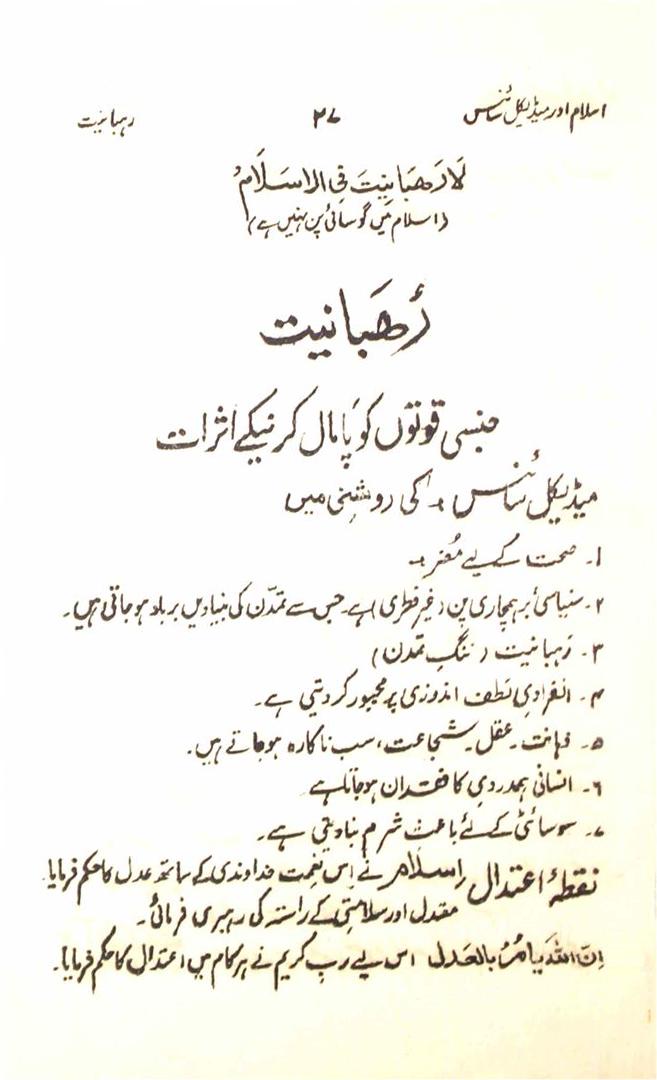 اسلام اور میڈیکل سائنس ۳۷ رہبانیت
لَا رَھبَانِیتَ فِی الاِسلَام
(اسلام میں گوسائی پن نہیں ہے)
رُھبَانیت
جنسی قوتوں کو پامال کرنیکے اثرات
میڈیکل سائنس کی روشنی میں
۱۔ صحت کے لیے مُضر۔
۲۔ سنیاسی برہمچاری پن (غیر فطری) ہے۔ جس سے تمدّن کی بنیادیں برباد ہو جاتی ہیں۔
۳۔ رَہبانیت (ننگِ تمدن)
۴۔ انفرادی لطف اندوزی پر مجبور کر دیتی ہے۔
۵۔ ذہانت۔ عقل۔ شجاعت، سب ناکارہ ہو جاتے ہیں۔
۶۔ انسانی ہمدردی کا فقدان ہو جاتا ہے
۷۔ سوسائٹی کے لئے باعث شرم بنا دیتی ہے۔
نقطۂ اعتدال اسلام نے اِس نعمت خداوندی کے ساتھ عدل کا حکم فرمایا۔
مقدل اور سلامتی کے راستہ کی رہبری فرمائی۔
اِنَّ اللّٰہَ یَامُرُ بِالعَدل اس لیے رب کریم نے ہر کام میں اعتدال کا حکم فرمایا۔